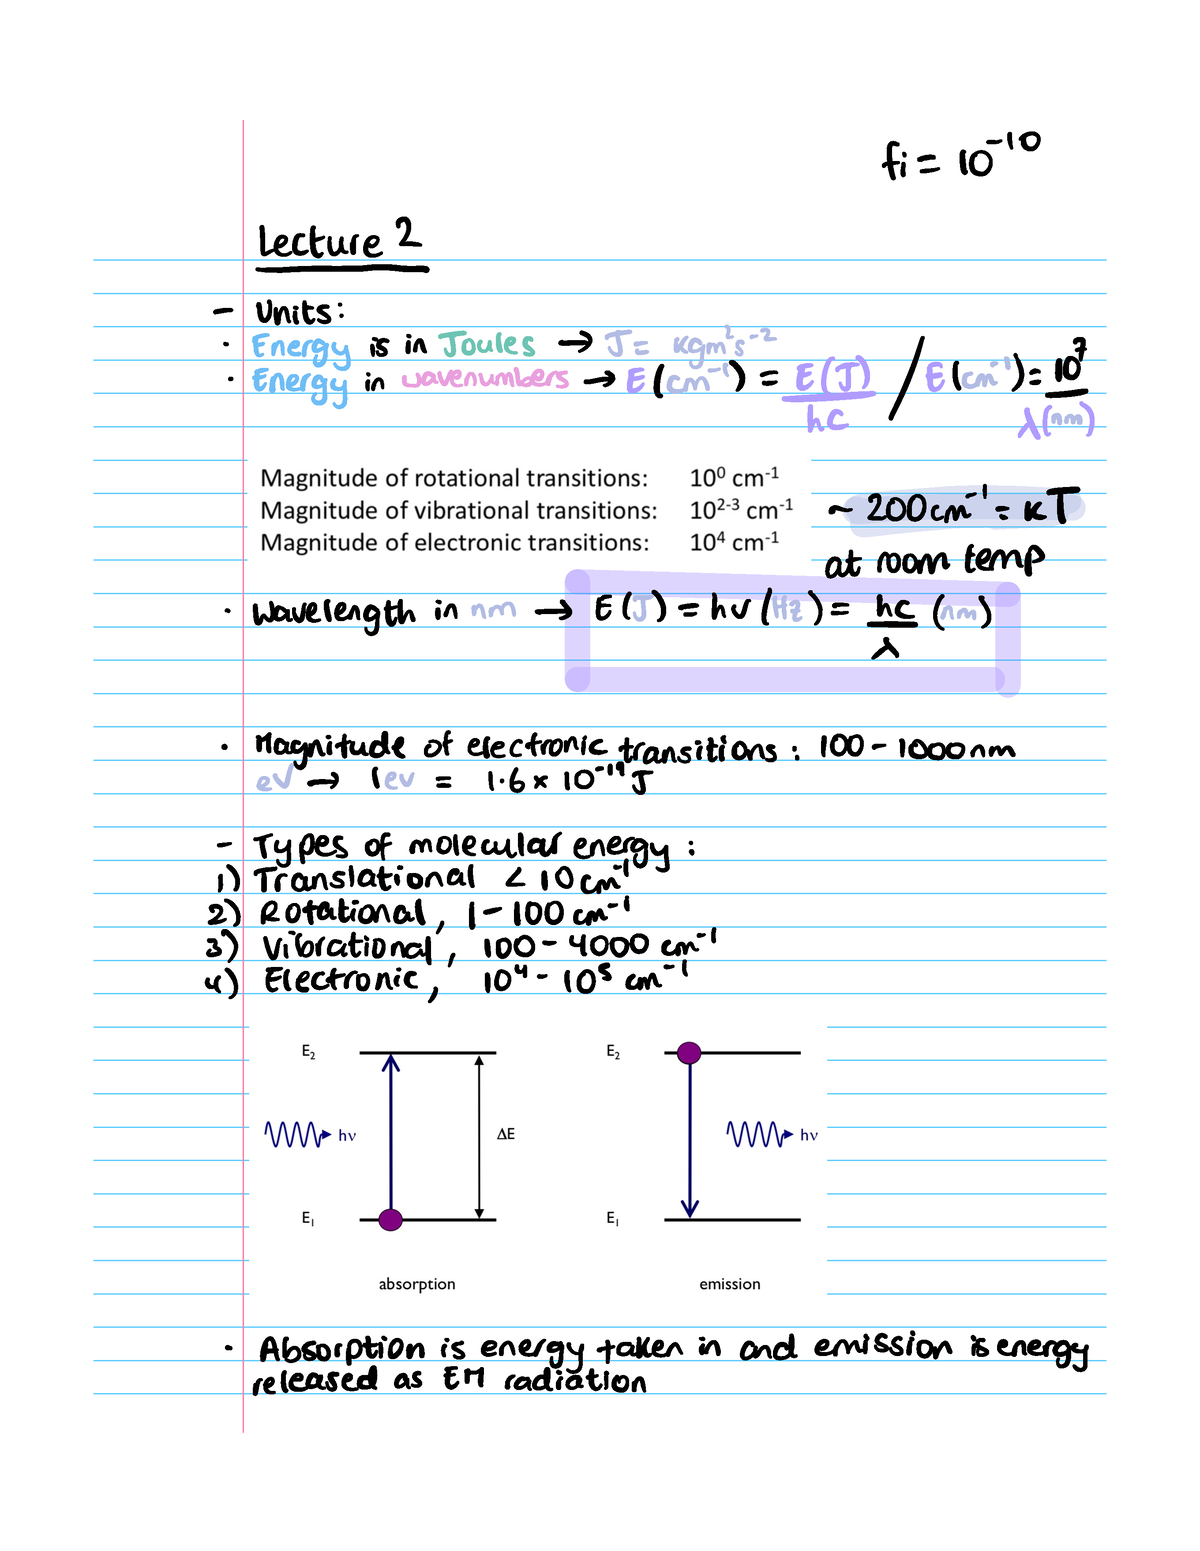 fi = 10⁻¹⁰
Lecture 2
- Units:
· Energy is in Joules → J = kgm²s⁻²
· Energy in wavenumbers → E(cm⁻¹) = E(J)/hc / E(cm⁻¹) = 10⁷/λ(nm)
Magnitude of rotational transitions: 10⁰ cm⁻¹
Magnitude of vibrational transitions: 10²⁻³ cm⁻¹
Magnitude of electronic transitions: 10⁴ cm⁻¹
~ 200cm⁻¹ = kT
at room temp
· Wavelength in nm → E(J) = hν(Hz) = hc/λ (nm)
· Magnitude of electronic transitions : 100 - 1000nm
eV → 1ev = 1.6 × 10⁻¹⁹J
- Types of molecular energy :
1) Translational < 10cm⁻¹
2) Rotational, 1 - 100 cm⁻¹
3) Vibrational, 100 - 4000 cm⁻¹
4) Electronic, 10⁴ - 10⁵ cm⁻¹
E₂ E₂
hν ΔE hν
E₁ E₁
absorption emission
· Absorption is energy taken in and emission is energy
released as EM radiation